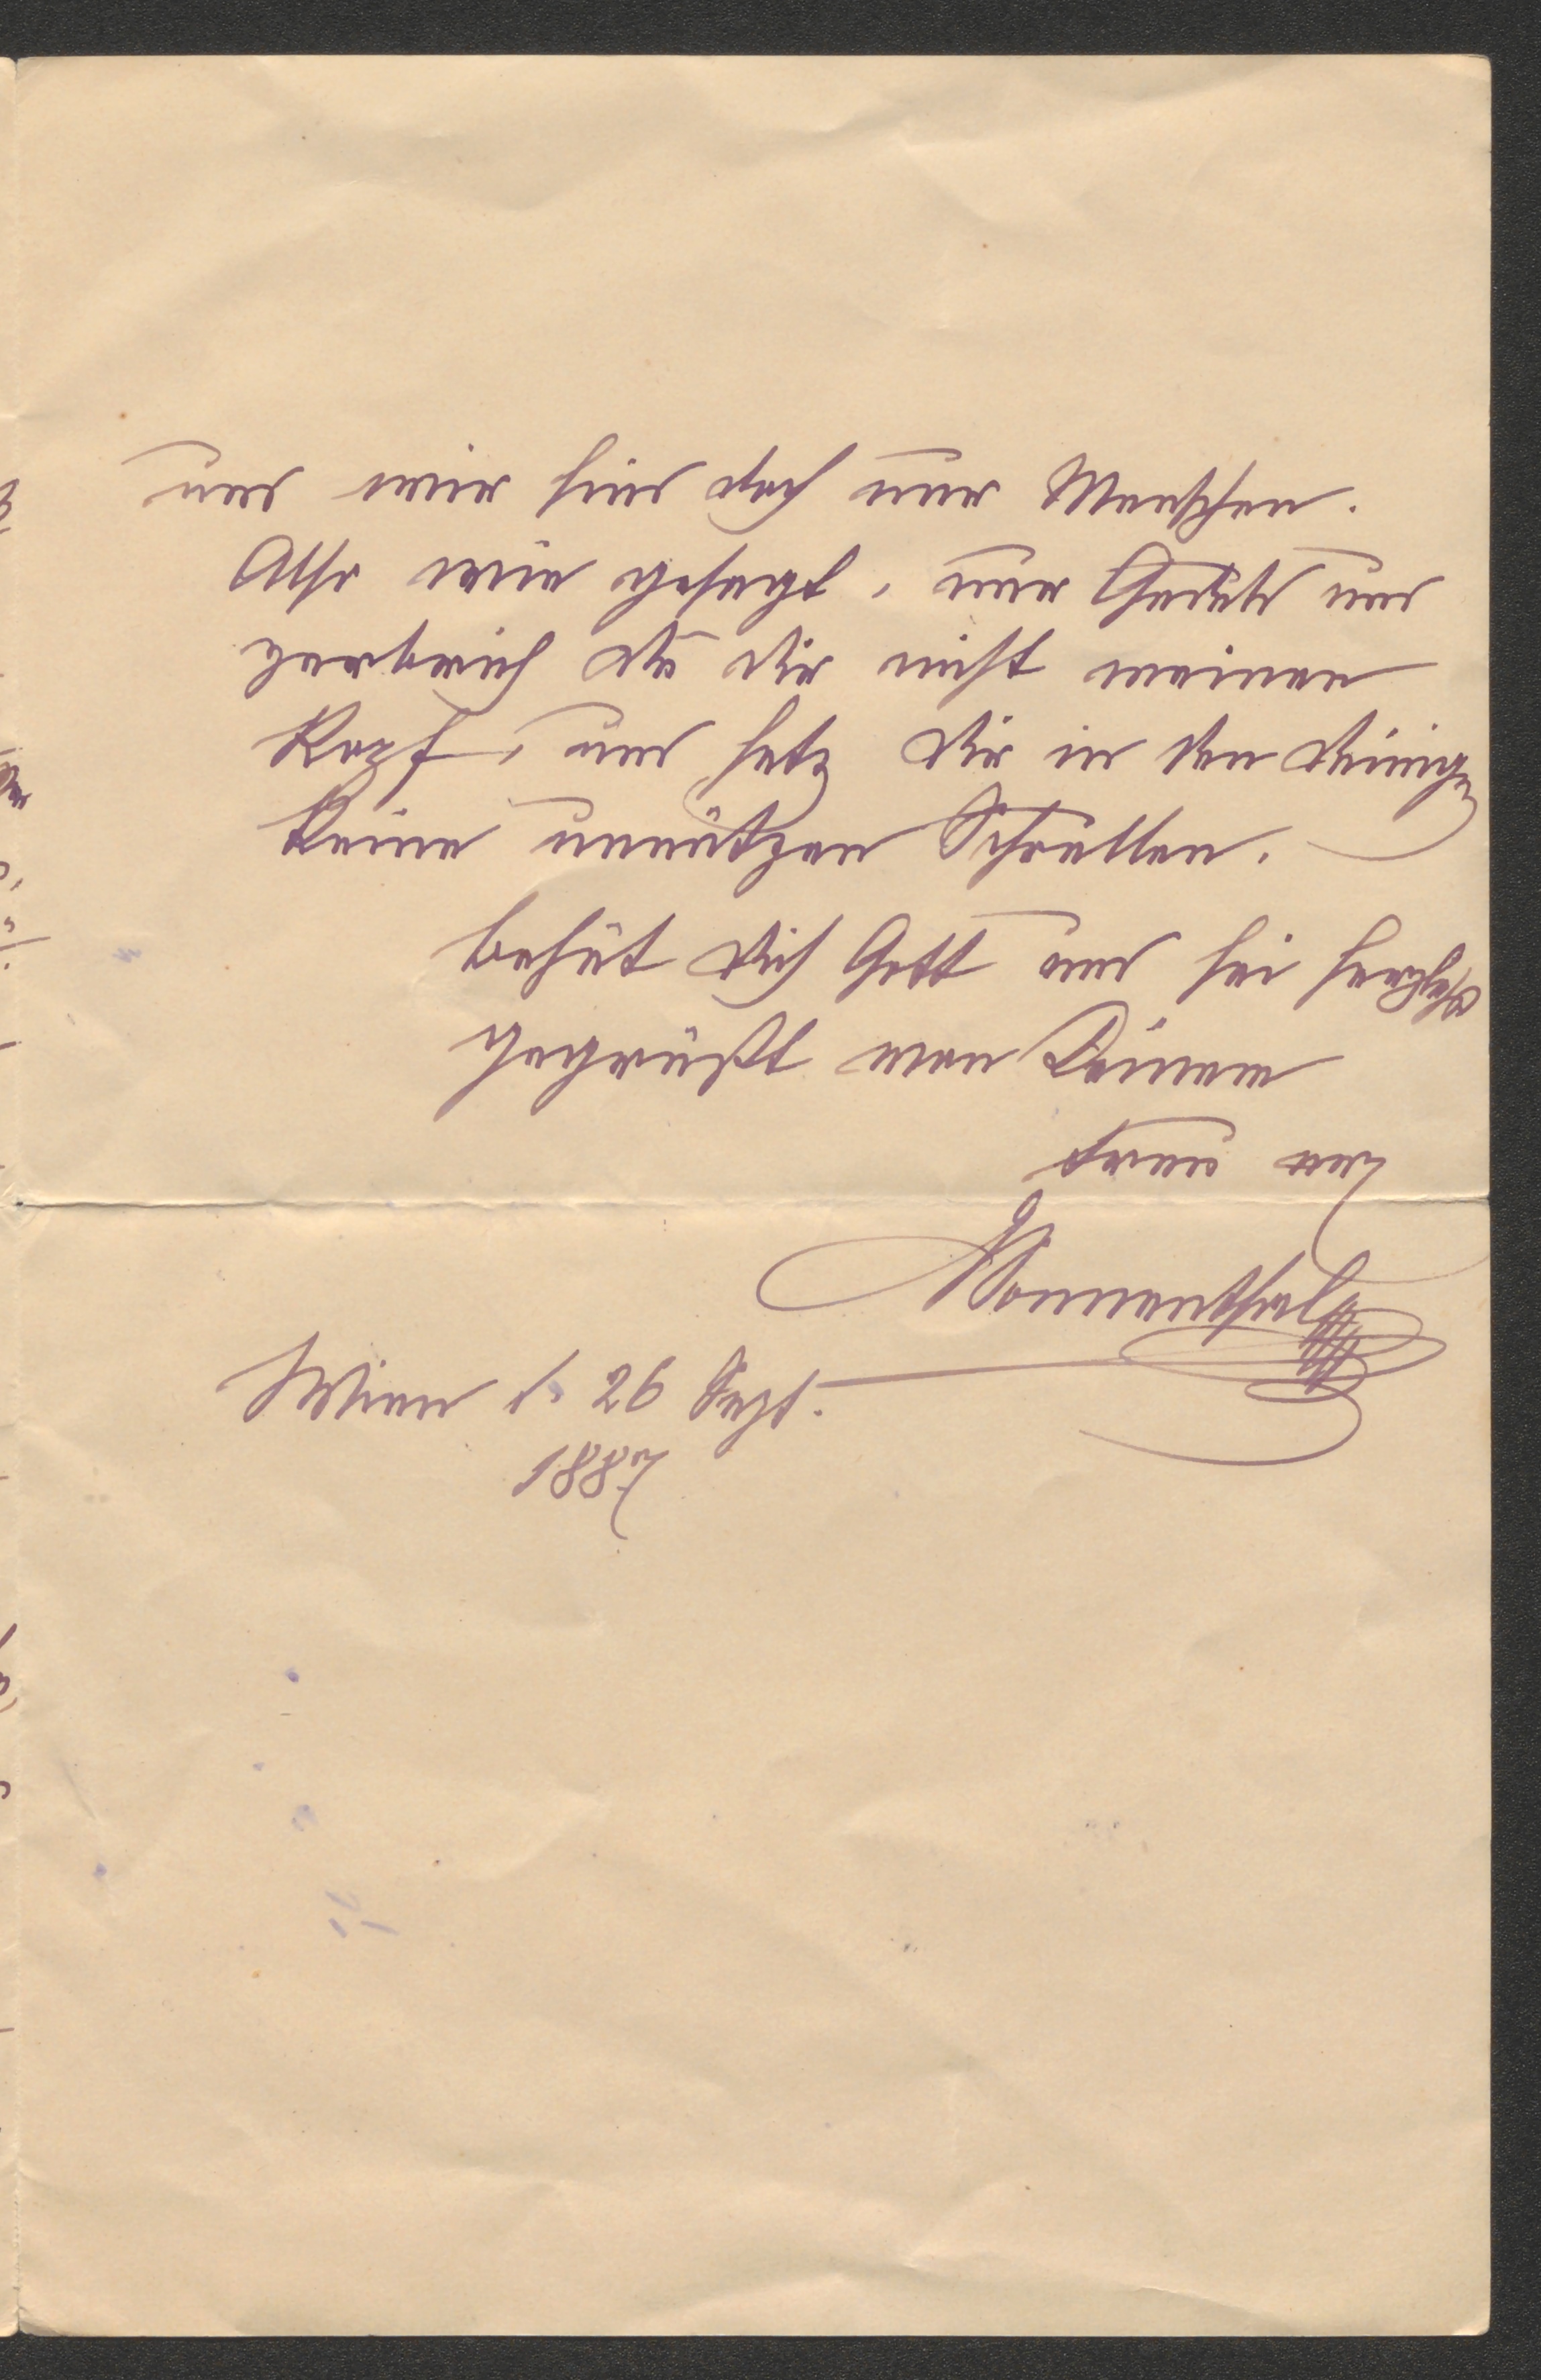 und wir sind doch nur Menschen.
Also wie gesagt, nur Geduld und
zerbrich du dir nicht meinen
Kopf, und setz dir in den deinigen
keine unnützen Schrullen.
Behüt dich Gott und sei herzlichst
gegrüßt von Deinem
treu erg
Sonnenthal
Wien d. 26 Sept.
1887